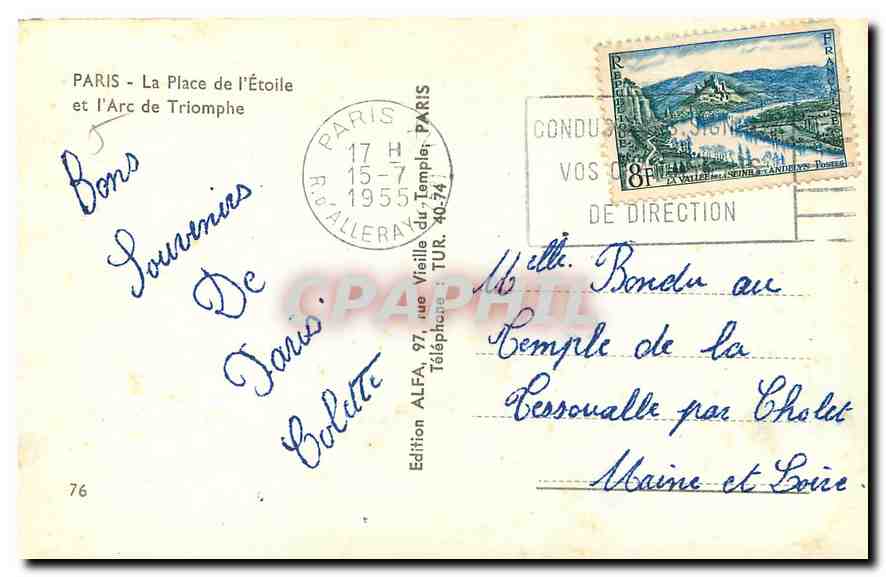 PARIS - La Place de l'Étoile
et l'Arc de Triomphe
Bons
Souvenirs
De
Paris.
Colette
76
Edition ALFA, 97, rue Vieille du Temple, PARIS
Téléphone : TUR. 40-74
PARIS
17 H
15-7
1955
R. D'ALLERAY
DE DIRECTION
VOS
REPUBLIQUE
FRANCAISE
8F
LA VALLEE DE LA SEINE AUX ANDELYS POSTES
CPAPHIL
Melle. Bondu au
Temple de la
Tessoualle par Cholet
Maine et Loire